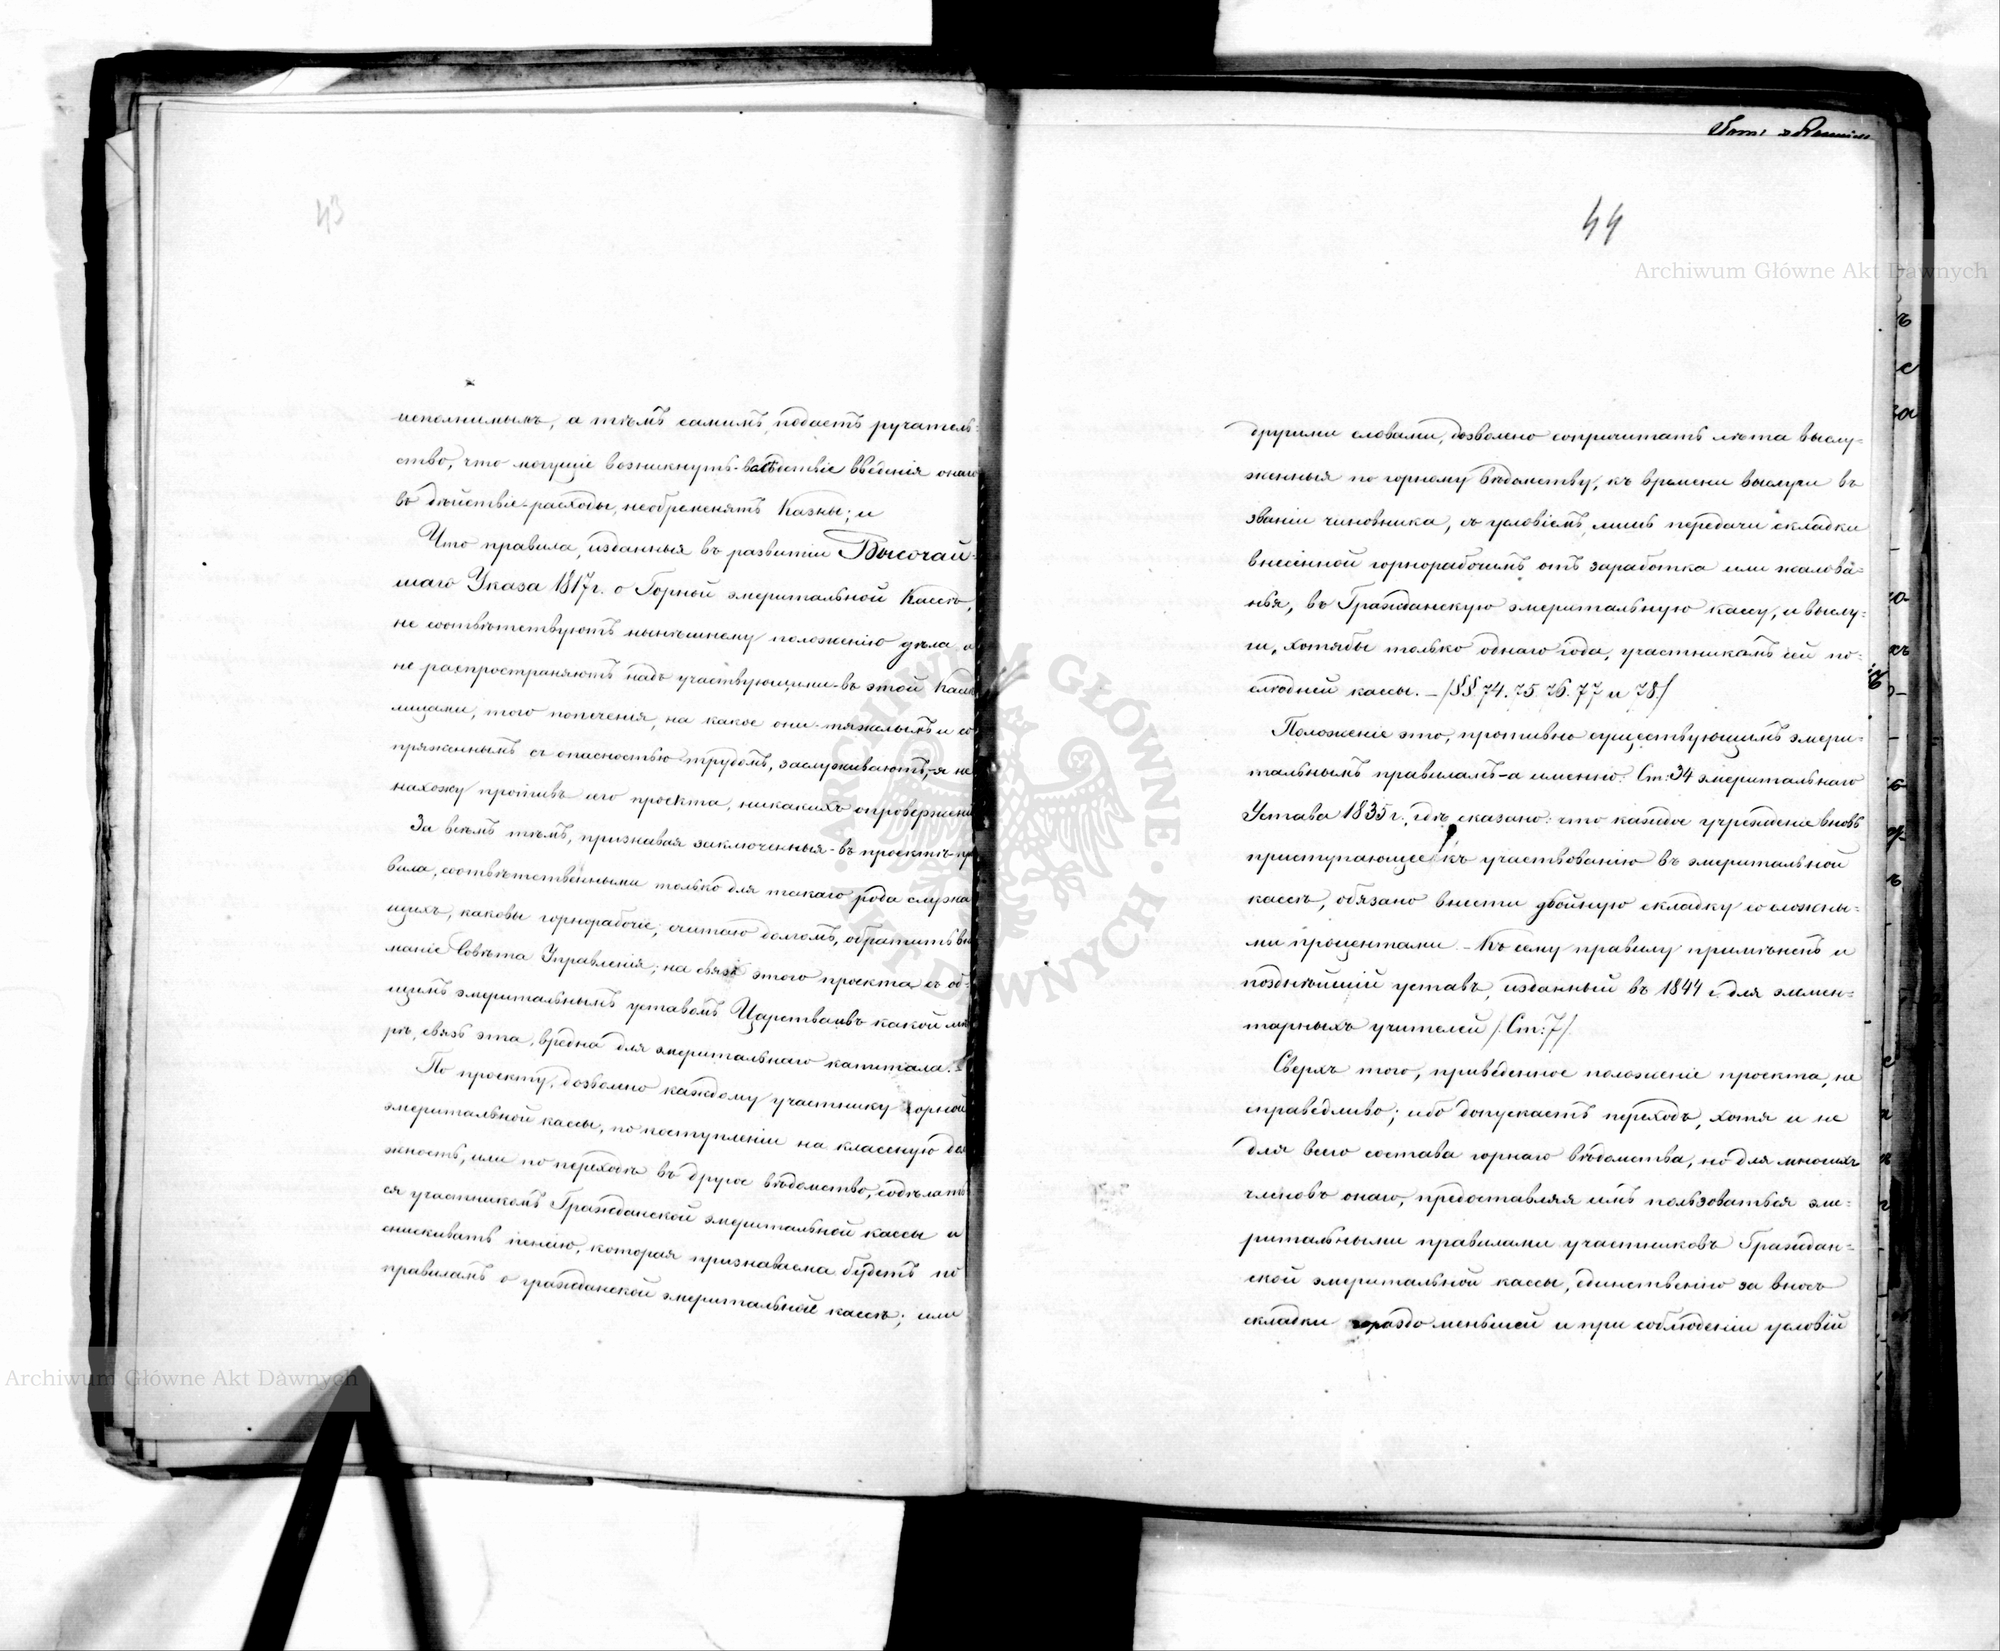 43
исполнимымъ, а тѣмъ самимъ, подастъ ручатель-
ство, что могущіе возникнуть вслѣдствіе введенія онаго
въ дѣйствіе расходы, необременятъ Казны; и
Что правила, изданныя въ развитіи Высочай-
шаго Указа 1817 г. о Горной эмеритальной Кассѣ,
не соотвѣтствуютъ нынѣшнему положенію дѣла и
не распространяютъ надъ участвующими въ этой Кассѣ
лицами, того попеченія, на какое они тяжелымъ и со
пряженнымъ съ опасностью трудомъ, заслуживаютъ, я не
нахожу противъ сего проекта, никакихъ опроверженій
За всѣмъ тѣмъ, признавая заключенныя въ проектѣ пра
вила, соотвѣтственными только для такаго рода служа
щихъ, каковы горнорабочіе, считаю долгомъ, обратить вни
маніе Совѣта Управленія, на связь этого проекта съ об-
щимъ эмеритальнымъ уставомъ Царства и въ какой мѣ
рѣ, связь эта, вредна для эмеритальнаго капитала.
По проекту, дозволено каждому участнику горной
эмеритальной кассы, по поступленіи на классную дол
жность, или по переходѣ въ другое вѣдомство, содѣлать
ся участникомъ Гражданской эмеритальной кассы и
снискивать пенсію, которая признаваема будетъ по
правиламъ о гражданской эмеритальной кассѣ; или
44
Archiwum Główne Akt Dawnych
другими словами, дозволено сопричитать лѣта выслу-
женныя по горному вѣдомству, къ времени выслуги въ
званіи чиновника, съ условіемъ, лишь передачи складки
внесенной горнорабочимъ отъ заработка или жалова-
нья, въ Гражданскую эмеритальную кассу, и выслу-
ги, хотябы только однаго года, участникамъ сей по-
слѣдней кассы. – /§§ 74. 75. 76. 77 и 78./
Положеніе это, противно существующимъ эмери-
тальнымъ правиламъ а именно: Ст: 34 эмеритальнаго
Устава 1835 г., гдѣ сказано: что каждое учрежденіе вновь
приступающее къ участвованію въ эмеритальной
кассѣ, обязано внести двойную складку со сложны-
ми процентами. – Къ сему правилу примѣненъ и
позднѣйшій уставъ, изданный въ 1844 г. для элемен-
тарныхъ учителей /: Ст: 7/.
Сверхъ того, приведенное положеніе проекта, не
справедливо; ибо допускаетъ переходъ, хотя и не
для всего состава горнаго вѣдомства, но для многихъ
членовъ онаго, предоставляя имъ пользоваться эме-
ритальными правилами участниковъ Граждан-
ской эмеритальной кассы, единственно за вносъ
складки гораздо меньшей и при соблюденіи условій
ARCHIWUM GŁÓWNE AKT DAWNYCH
Archiwum Główne Akt Dawnych